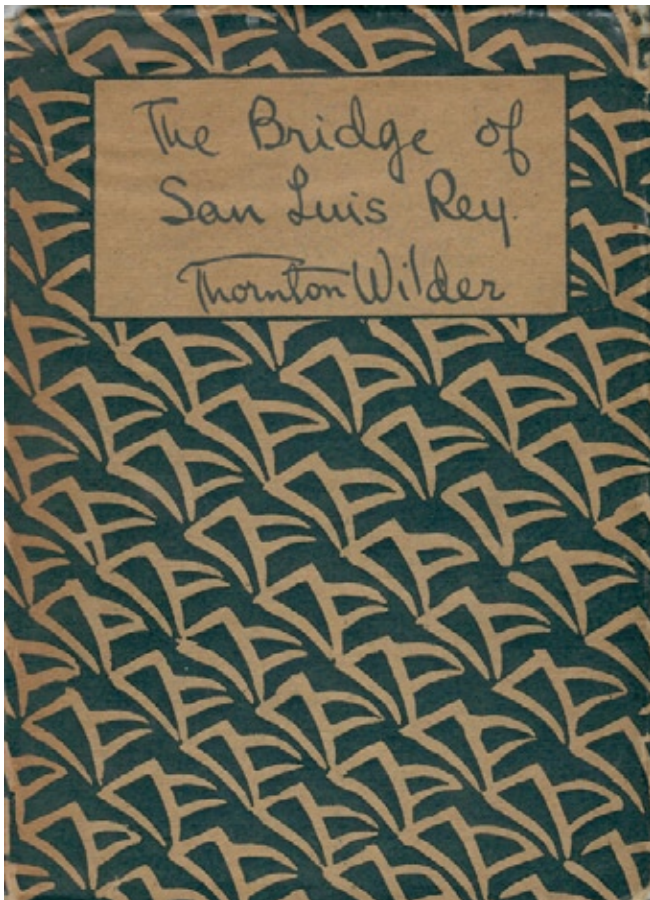 The Bridge of
San Luis Rey.
Thornton Wilder